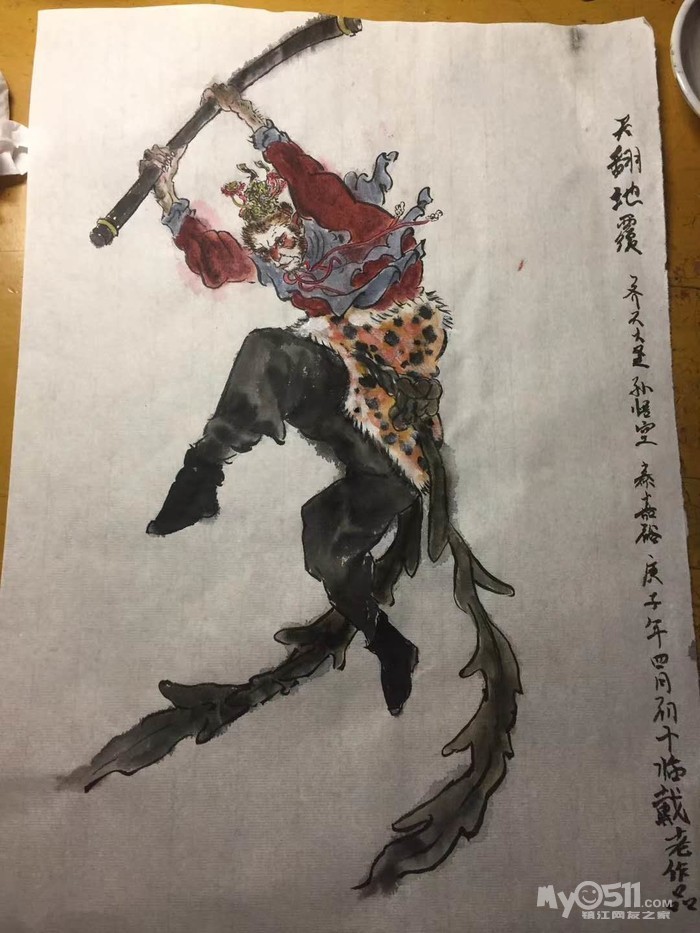 天翻地覆
齐天大圣 孙悟空 袁嘉裕 庚子年四月初十临戴老作品
My0511.com
镇江网友之家